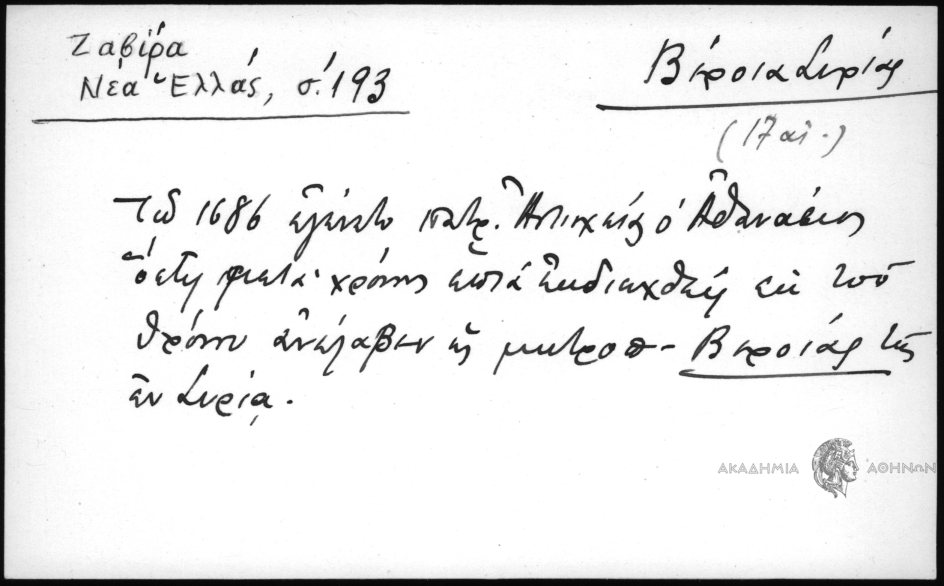 Ζαβίρα
Νέα Ἑλλάς, σ. 193
Βέροια Συρίας
(17 αἰ.)
Τῷ 1686 ἐγένετο πατρ. Ἀντιοχείας ὁ Ἀθανάσιος
ὅστις μετὰ χρόνους ἑπτὰ ἐκδιωχθείς ἐκ τοῦ
θρόνου ἀνέλαβεν ὡς μητροπ- Βεροίας τῆς
ἐν Συρίᾳ.
ΑΚΑΔΗΜΙΑ ΑΘΗΝΩΝ